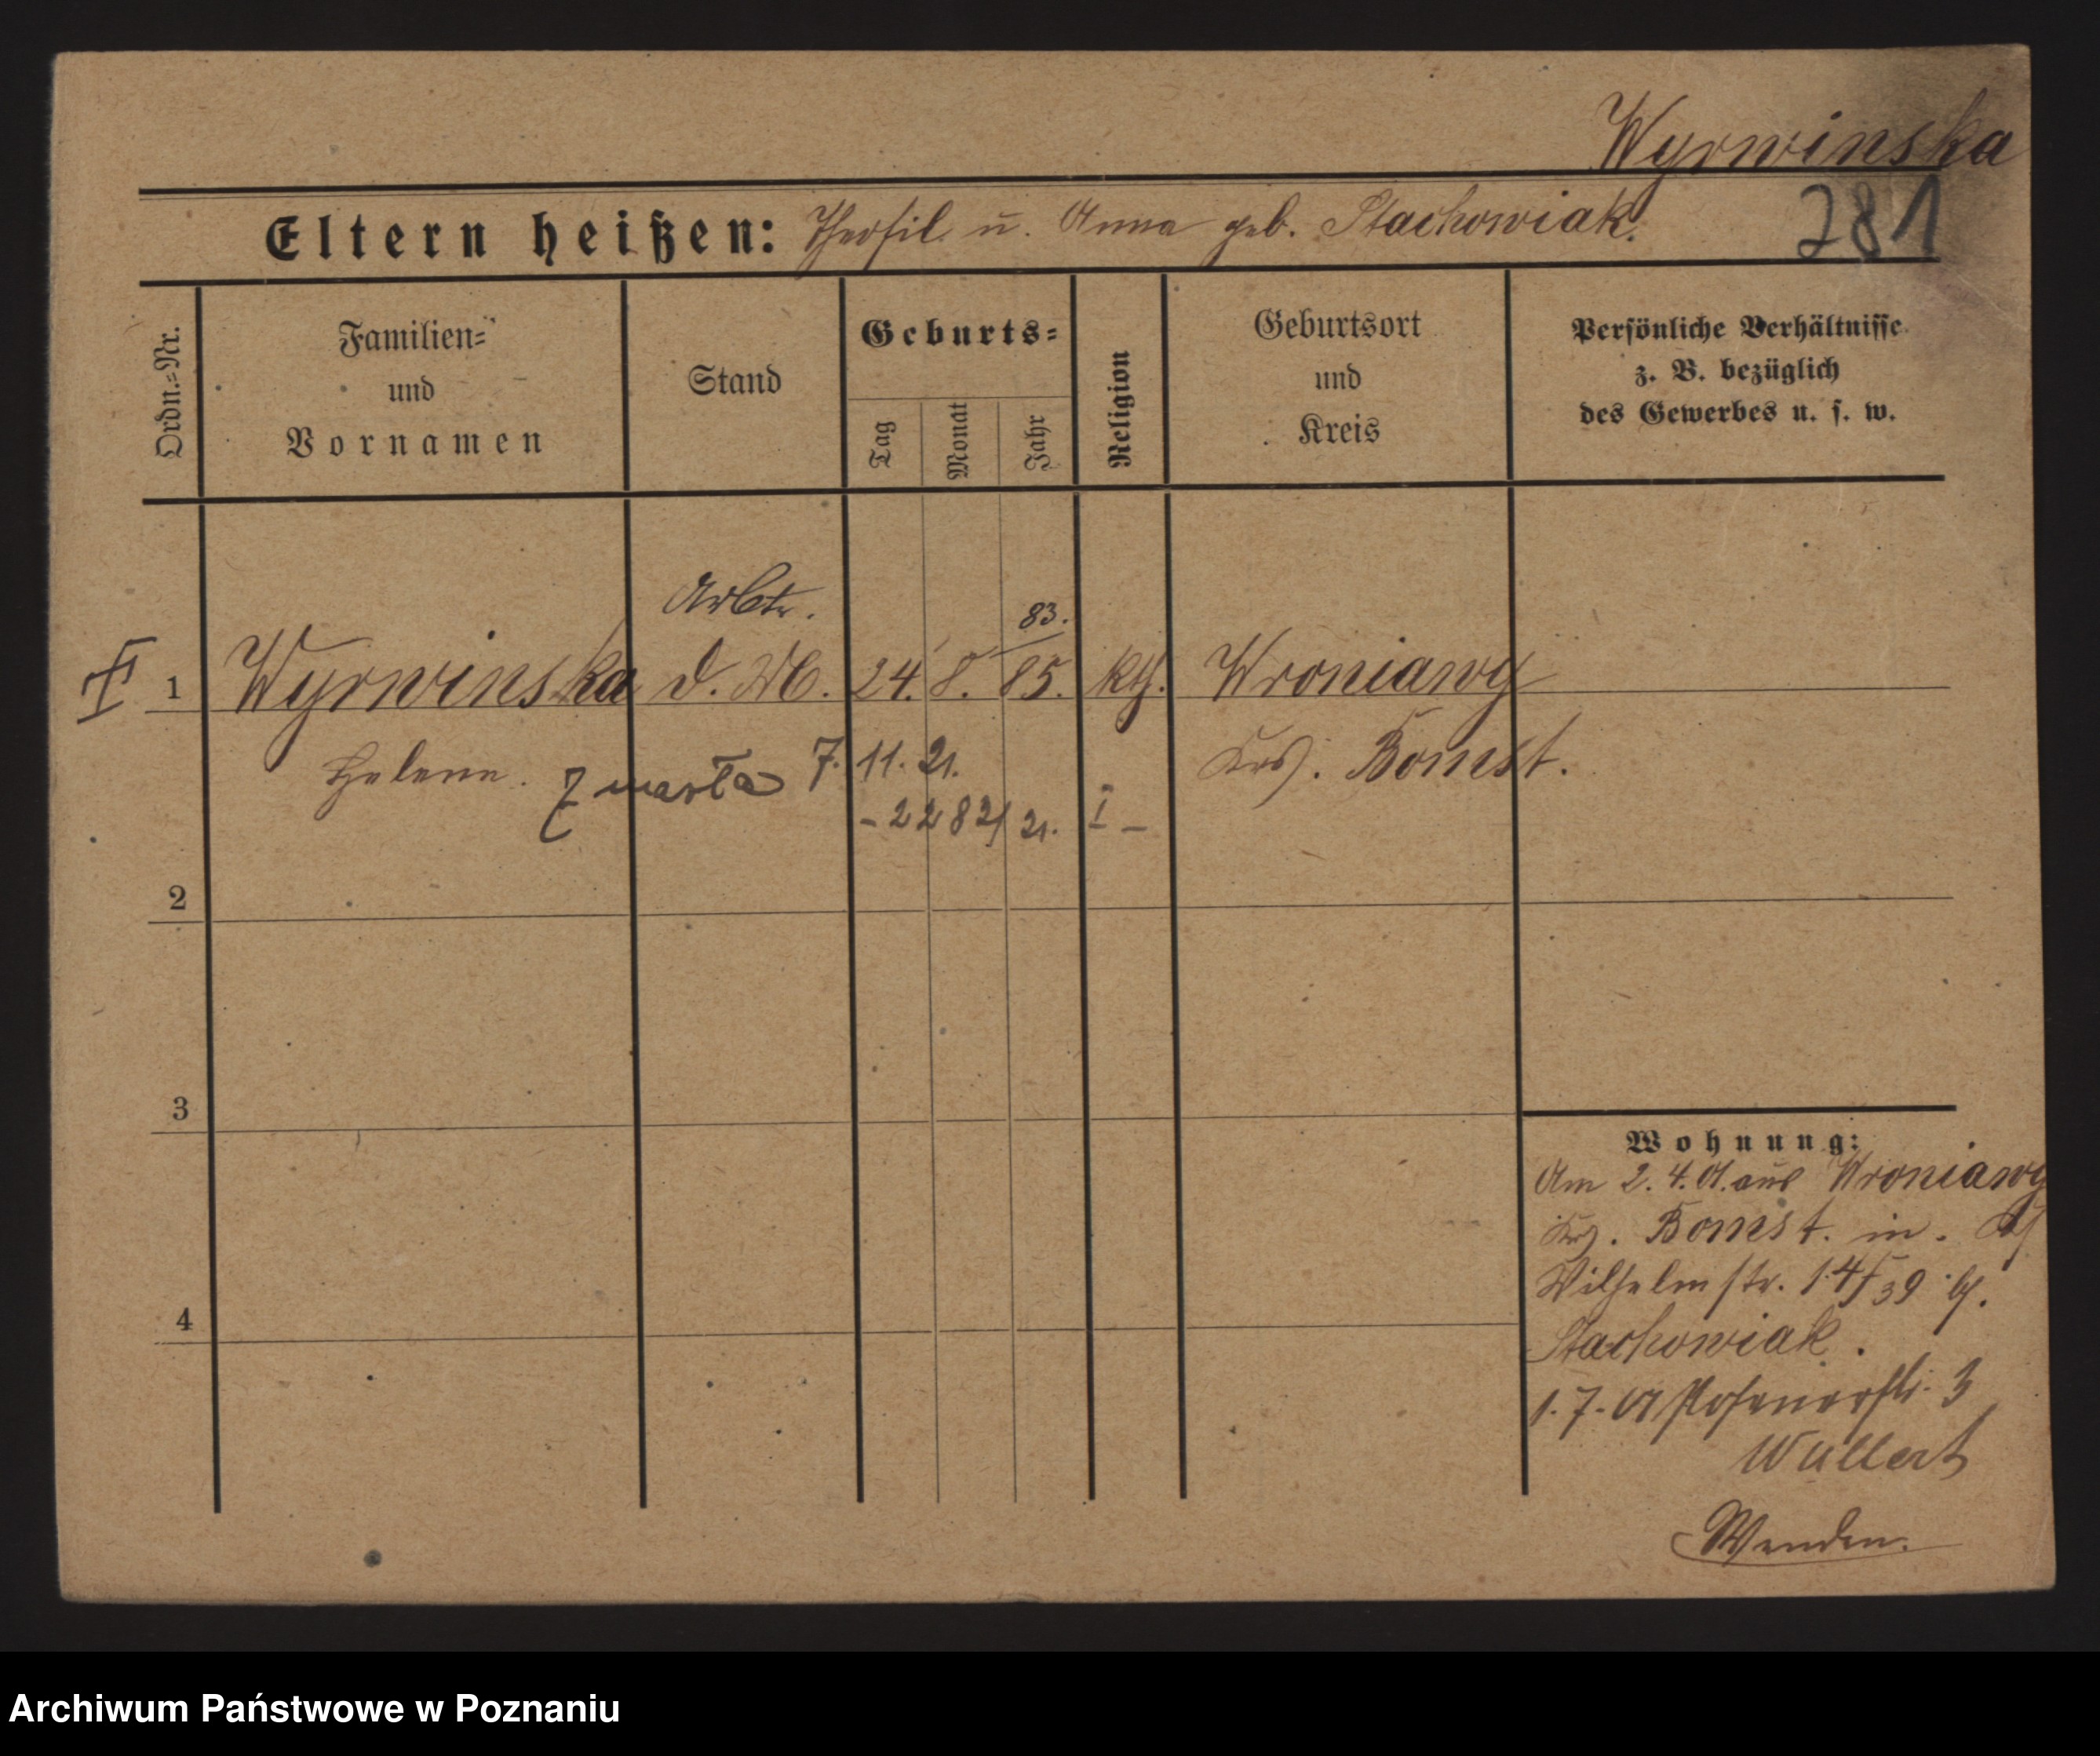 Wyrwinska
Eltern heißen: Theofil u. Anna geb. Stachowiak.
281
Ordn.=Nr.
Familien=
und
Vornamen
Stand
Geburts=
Tag
Monat
Jahr
Religion
Geburtsort
und
Kreis
Persönliche Verhältnisse
z. B. bezüglich
des Gewerbes u. s. w.
Arbtr.
83.
1 Wyrwinska d. M. 24. 8. 85. kth. Wroniawy
Helene. Zmarła 7. 11. 21. Krs. Bomst.
- 2282/21. I -
2
3
4
Wohnung:
Am 2. 4. 01. aus Wroniawy
Krs. Bomst. in.
Wilhelmstr. 14/39 b/.
Stachowiak.
1. 7. 01 Posenerstr. 3
Wullert
Wenden.
Archiwum Państwowe w Poznaniu